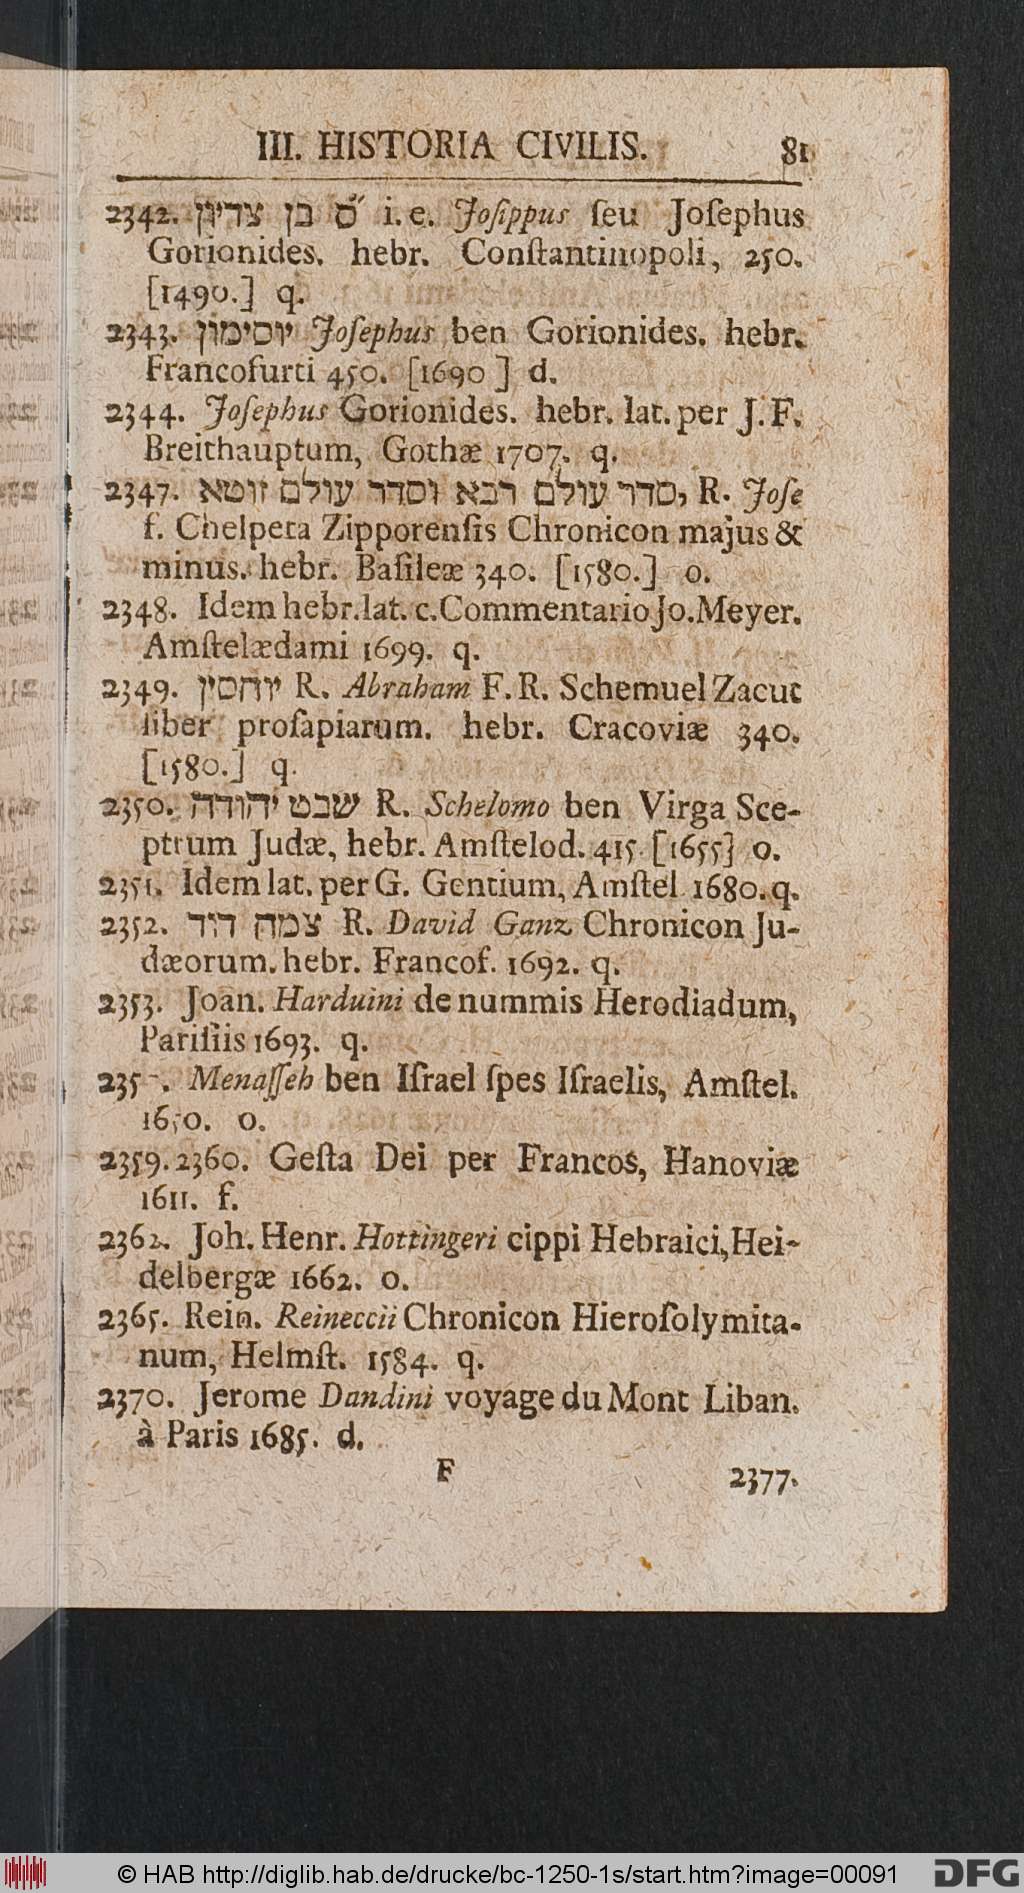 III. HISTORIA CIVILIS. 81
2342. ס״ בן צדיון i. e. Joſippus ſeu Joſephus
Gorionides. hebr. Conſtantinopoli, 250.
[1490.] q.
2343. יוסימון Joſephus ben Gorionides. hebr.
Francofurti 450. [1690 ] d.
2344. Joſephus Gorionides. hebr. lat. per J. F.
Breithauptum, Gothæ 1707. q.
2347. סדר עולם רבא וסדר עולם זוטא, R. Joſe
f. Chelpeta Zipporenſis Chronicon majus &
minus. hebr. Baſileæ 340. [1580.] o.
2348. Idem hebr. lat. c. Commentario Jo. Meyer.
Amſtelædami 1699. q.
2349. יוחסין R. Abraham F. R. Schemuel Zacut
liber proſapiarum. hebr. Cracoviæ 340.
[1580.] q.
2350. שבט יהודה R. Schelomo ben Virga Sce-
ptrum Judæ, hebr. Amſtelod. 415. [1655] o.
2351. Idem lat. per G. Gentium, Amſtel. 1680. q.
2352. צמה דוד R. David Ganz Chronicon Ju-
dæorum. hebr. Francof. 1692. q.
2353. Joan. Harduini de nummis Herodiadum,
Pariſiis 1693. q.
235 . Menaſſeh ben Iſrael ſpes Iſraelis, Amſtel.
1650. o.
2359. 2360. Geſta Dei per Francos, Hanoviæ
1611. f.
2362. Joh. Henr. Hottingeri cippi Hebraici, Hei-
delbergæ 1662. o.
2365. Rein. Reineccii Chronicon Hieroſolymita-
num, Helmſt. 1584. q.
2370. Jerome Dandini voyage du Mont Liban.
à Paris 1685. d.
F 2377.
© HAB http://diglib.hab.de/drucke/bc-1250-1s/start.htm?image=00091 DFG